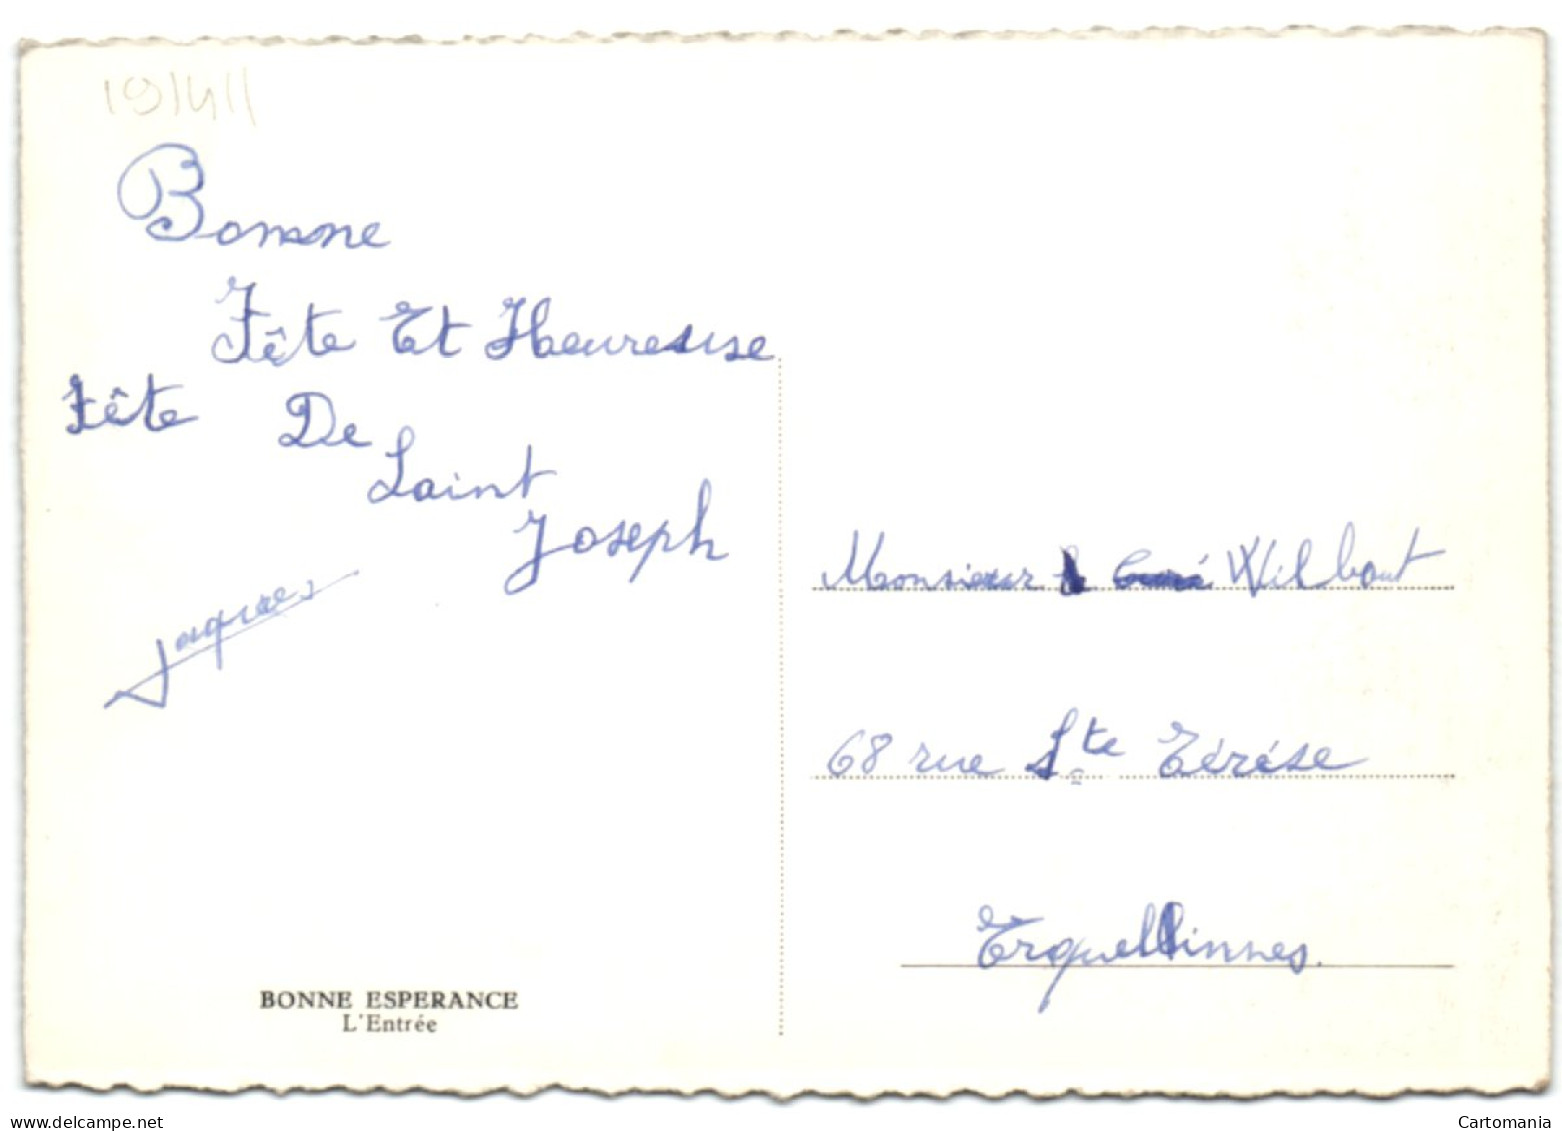 19/411
Bonne
Fête Et Heureuse
Fête De
Saint
Joseph
Jacques
BONNE ESPERANCE
L'Entrée
Monsieur le Curé Wilbaut
68 rue Ste Térése
Erquellinnes.
www.delcampe.net
Cartomania